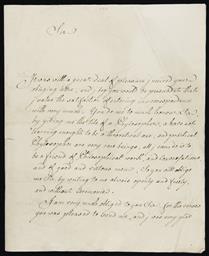 Sir
It was with a great deal of pleasure I received your
obliging letter, and I beg you would be persuaded that
I value the satisfaction of entering in correspondence
with very much. You do me to much honour Sir
by giving me the title of a Philosopher, I have not
learning enought to be a theoretical one, and practical
Philosophers are very rare beings, all I can do is to
be a friend of Philosophical work, and conversations,
and of good and virtuous men; So you will oblige
me Sir, by writing to me always openly and freely,
and without Ceremonie.
I am very much obliged to you Sir, for the verses
you was pleased to send me, and I are very